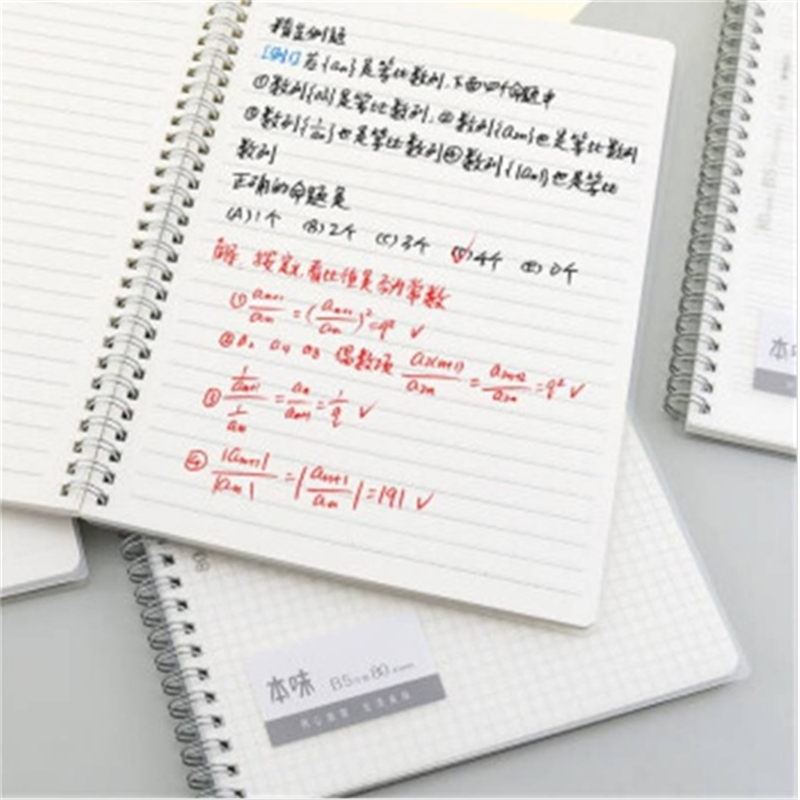 精选例题
[例1]若{an}是等比数列,下面四个命题中
①数列{an²}是等比数列,②数列{a2n}也是等比数列
③数列{1/an}也是等比数列④数列{|an|}也是等比
数列
正确的命题是
(A)1个 (B)2个 (C)3个 (D)4个 (E)0个
解:按定义,看比值是否为常数
① an+1²/an² = (an+1/an)² = q² ✓
② a2 a4 a8 偶数项 a2(n+1)/a2n = a2n+2/a2n = q² ✓
③ (1/an+1)/(1/an) = an/an+1 = 1/q ✓
④ |an+1|/|an| = |an+1/an| = |q| ✓
本味 B5 80
本味